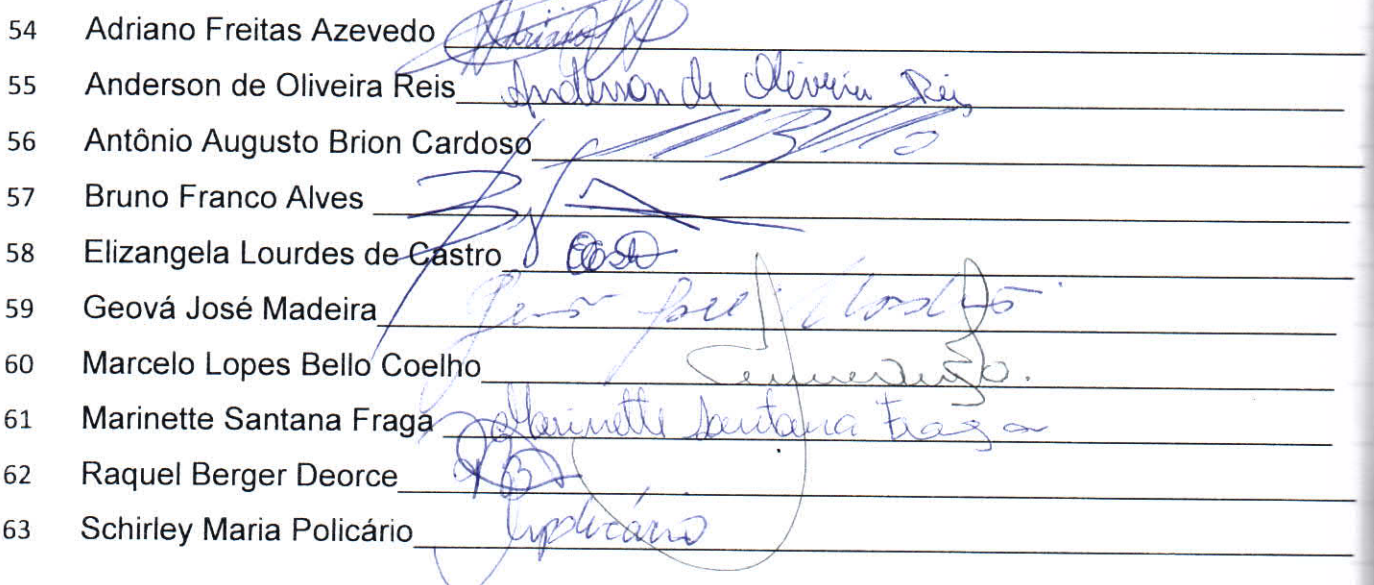 54 Adriano Freitas Azevedo Adriano
55 Anderson de Oliveira Reis Anderson de Oliveira Reis
56 Antônio Augusto Brion Cardoso
57 Bruno Franco Alves
58 Elizangela Lourdes de Castro
59 Geová José Madeira
60 Marcelo Lopes Bello Coelho
61 Marinette Santana Fraga Marinette Santana Fraga
62 Raquel Berger Deorce
63 Schirley Maria Policário